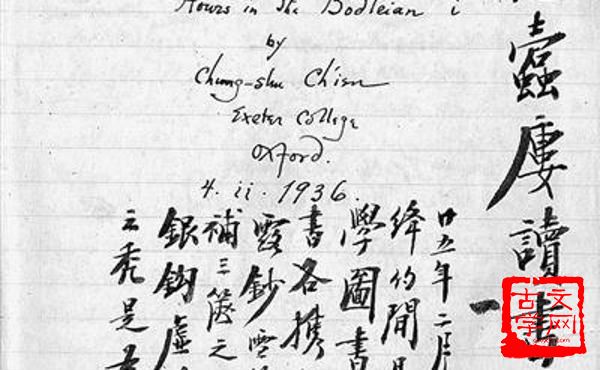 Hours in the Bodleian i
by
Chung-shu Ch'ien
Exeter College
Oxford.
4. ii. 1936.
蠹廔讀書
一
廿五年二月
絳約間日
學圖書
書各攜
露鈔雪
補三篋之
銀鉤虛
之禿是為
古文学网